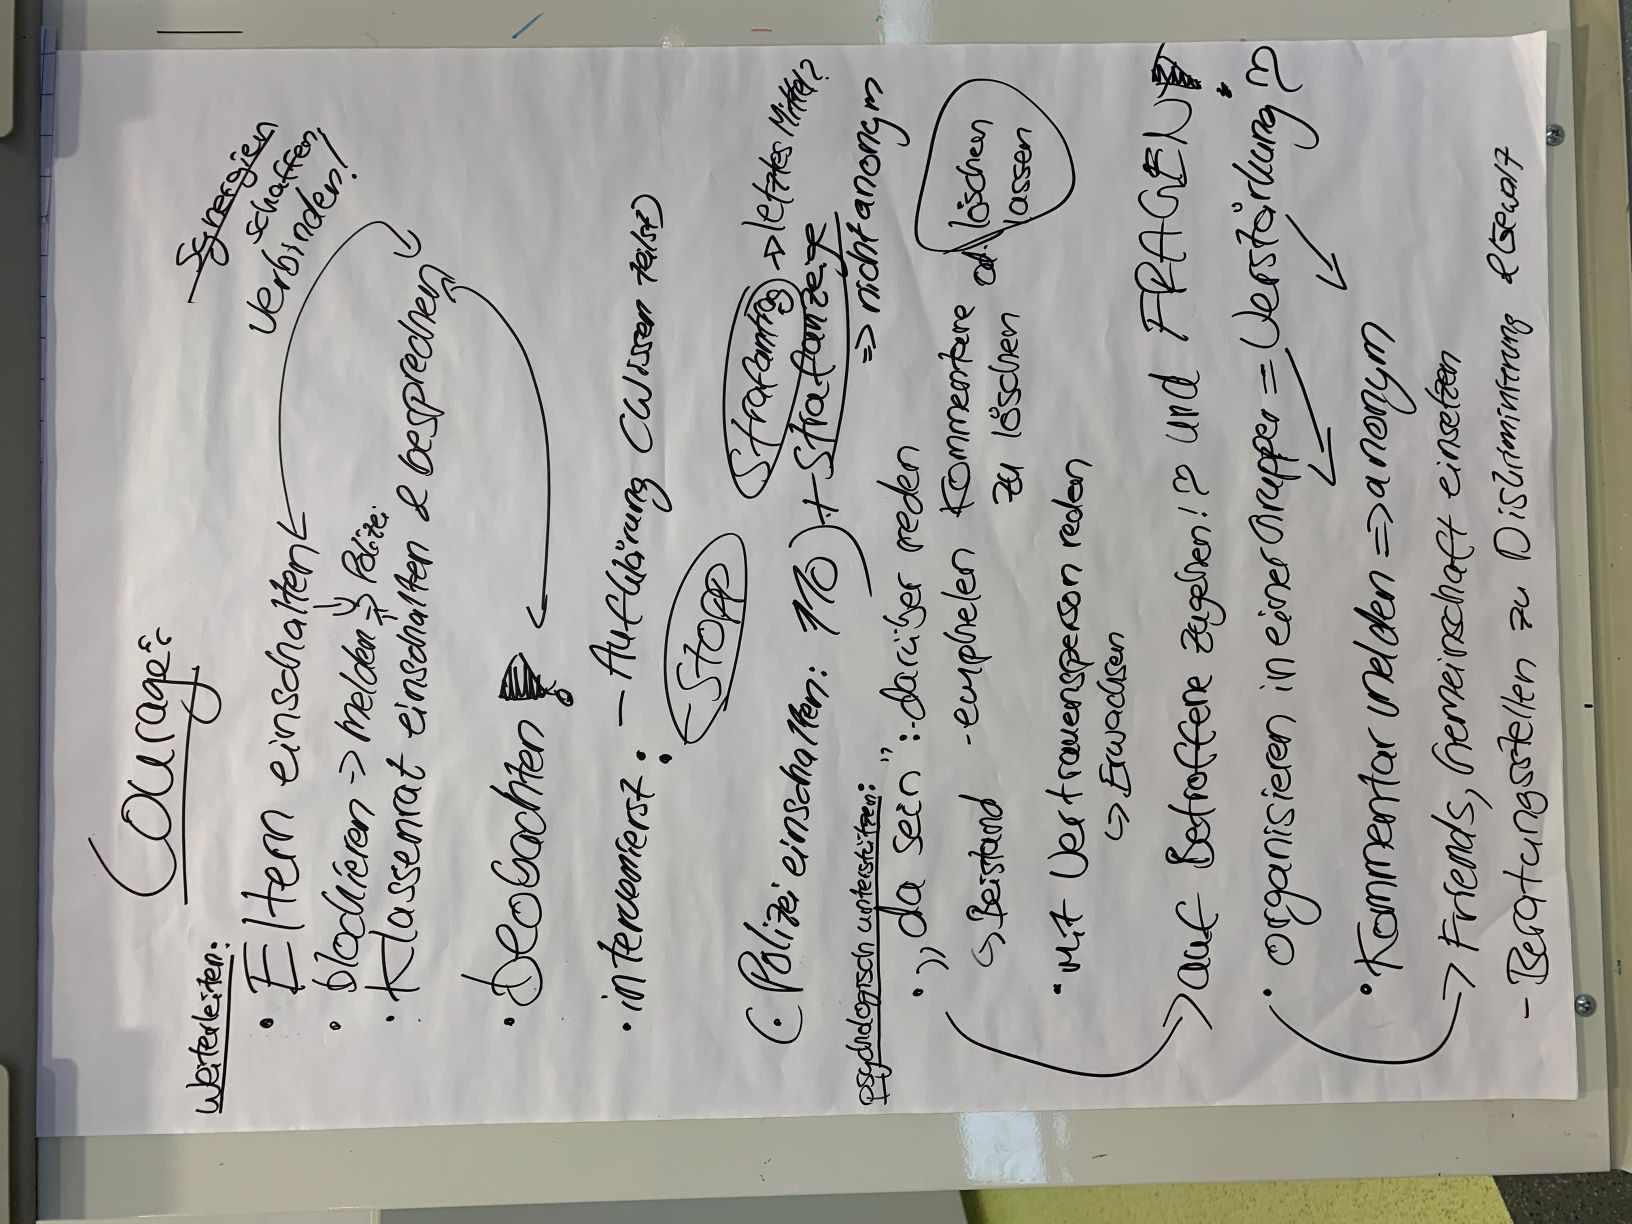 Courage:
Synergien
schaffen,
verbinden!
Weiterleiten:
• Eltern einschalten
• blockieren -> melden -> Polizei
• Klassenrat einschalten & besprechen
• beobachten!
• intervenierst: - Aufklärung (Wissen teilst)
- Stopp
(• Polizei einschalten: 110) + Strafantrag -> letztes Mittel?
Strafanzeige
=> nicht anonym
Psychologisch unterstützen:
• „da sein": - darüber reden
↳ Beistand - empfhelen Kommentare
zu löschen
löschen
lassen
• Mit Vertrauensperson reden
↳ Erwachsen
-> auf Betroffene zugehen!? und FRAGEN!
• organisieren in einer Gruppe = Verstärkung?
• Kommentar melden => anonym
-> Friends, Gemeinschaft einsetzen
- Beratungsstellen zu